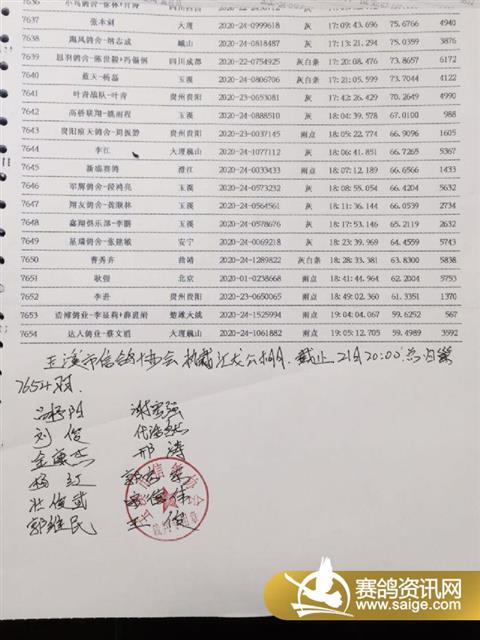 7637 张本刚 大理 2020-24-0999618 灰 17:09:43.696 75.6766 4940
7638 飓风鸽舍-纳志成 峨山 2020-24-0818487 灰 17:13:21.294 75.0359 3876
7639 四川成都 2020-22-0754925 灰白条 17:20:08.476 73.8657 6172
7640 蓝天-杨磊 玉溪 2020-24-0806706 灰白条 17:21:05.599 73.7044 4122
7641 叶青战队-叶青 贵州贵阳 2020-23-0653081 灰 17:42:26.429 70.2649 4990
7642 高桥联翔-姚雨程 玉溪 2020-24-0888510 灰 18:04:39.578 67.0100 988
7643 贵阳雍天鸽舍-周振黔 贵州贵阳 2020-23-0037145 雨点 18:05:22.774 66.9096 1605
7644 李江 大理巍山 2020-24-1077112 灰 18:06:41.851 66.7265 5367
7645 新瑞赛鸽 澄江 2020-24-0033433 雨点 18:07:12.189 66.6566 1433
7646 军辉鸽舍-段鸿亮 玉溪 2020-24-0573232 灰 18:08:55.054 66.4204 5632
7647 翔友鸽舍-黄顺林 玉溪 2020-24-0564561 灰 18:11:36.144 66.0539 2734
7648 鑫翔俱乐部-李鹏 玉溪 2020-24-0578676 灰 18:17:53.146 65.2119 2632
7649 星瑞鸽舍-张建敏 安宁 2020-24-0069218 灰 18:23:39.969 64.4559 5743
7650 曹秀卉 曲靖 2020-24-1289822 灰白条 18:28:33.381 63.8300 5838
7651 耿强 北京 2020-01-0238668 雨点 18:41:44.964 62.2004 5753
7652 李进 贵州贵阳 2020-23-0650065 灰 18:49:02.360 61.3351 1370
7653 楚雄大姚 2020-24-1525994 雨点 19:04:04.067 59.6252 567
7654 达人鸽业-蔡文滔 大理巍山 2020-24-1061882 雨点 19:05:12.705 59.4989 3592
玉溪市信鸽协会 截止21日20:00 总归巢
7654羽.
刘俊
邢涛
杨红
郭维民 王俊
赛鸽资讯网
www.saige.com